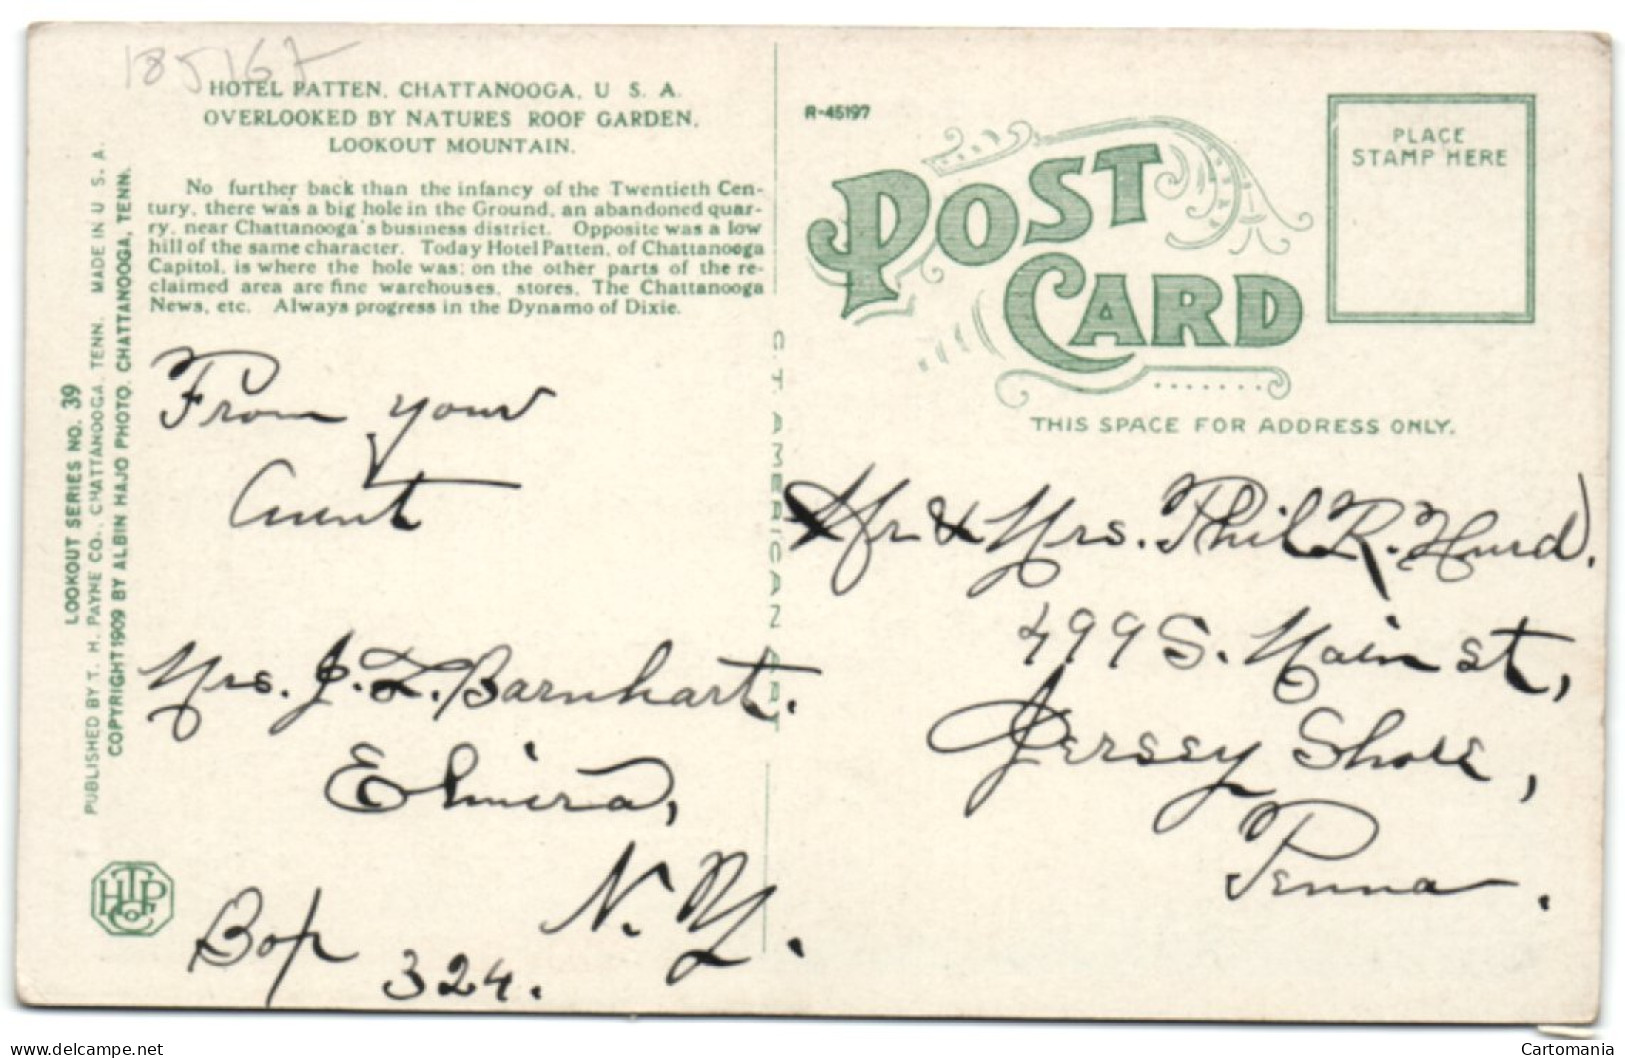 185167
HOTEL PATTEN, CHATTANOOGA, U S. A.
OVERLOOKED BY NATURES ROOF GARDEN,
LOOKOUT MOUNTAIN.
No further back than the infancy of the Twentieth Cen-
tury, there was a big hole in the Ground, an abandoned quar-
ry, near Chattanooga's business district. Opposite was a low
hill of the same character. Today Hotel Patten, of Chattanooga
Capitol, is where the hole was; on the other parts of the re-
claimed area are fine warehouses, stores, The Chattanooga
News, etc. Always progress in the Dynamo of Dixie.
LOOKOUT SERIES NO. 39
PUBLISHED BY T. H. PAYNE CO., CHATTANOOGA, TENN. MADE IN U. S. A.
COPYRIGHT 1909 BY ALBIN HAJO PHOTO, CHATTANOOGA, TENN.
From your
Aunt
Mrs. J. L. Barnhart.
Elmira,
N. Y.
Box 324.
C. T. AMERICAN ART
R-45197
POST
CARD
PLACE
STAMP HERE
THIS SPACE FOR ADDRESS ONLY.
Mr & Mrs. Phil R. Hurd.
499 S. Main st,
Jersey Shore,
Penna.
Cartomania
www.delcampe.net